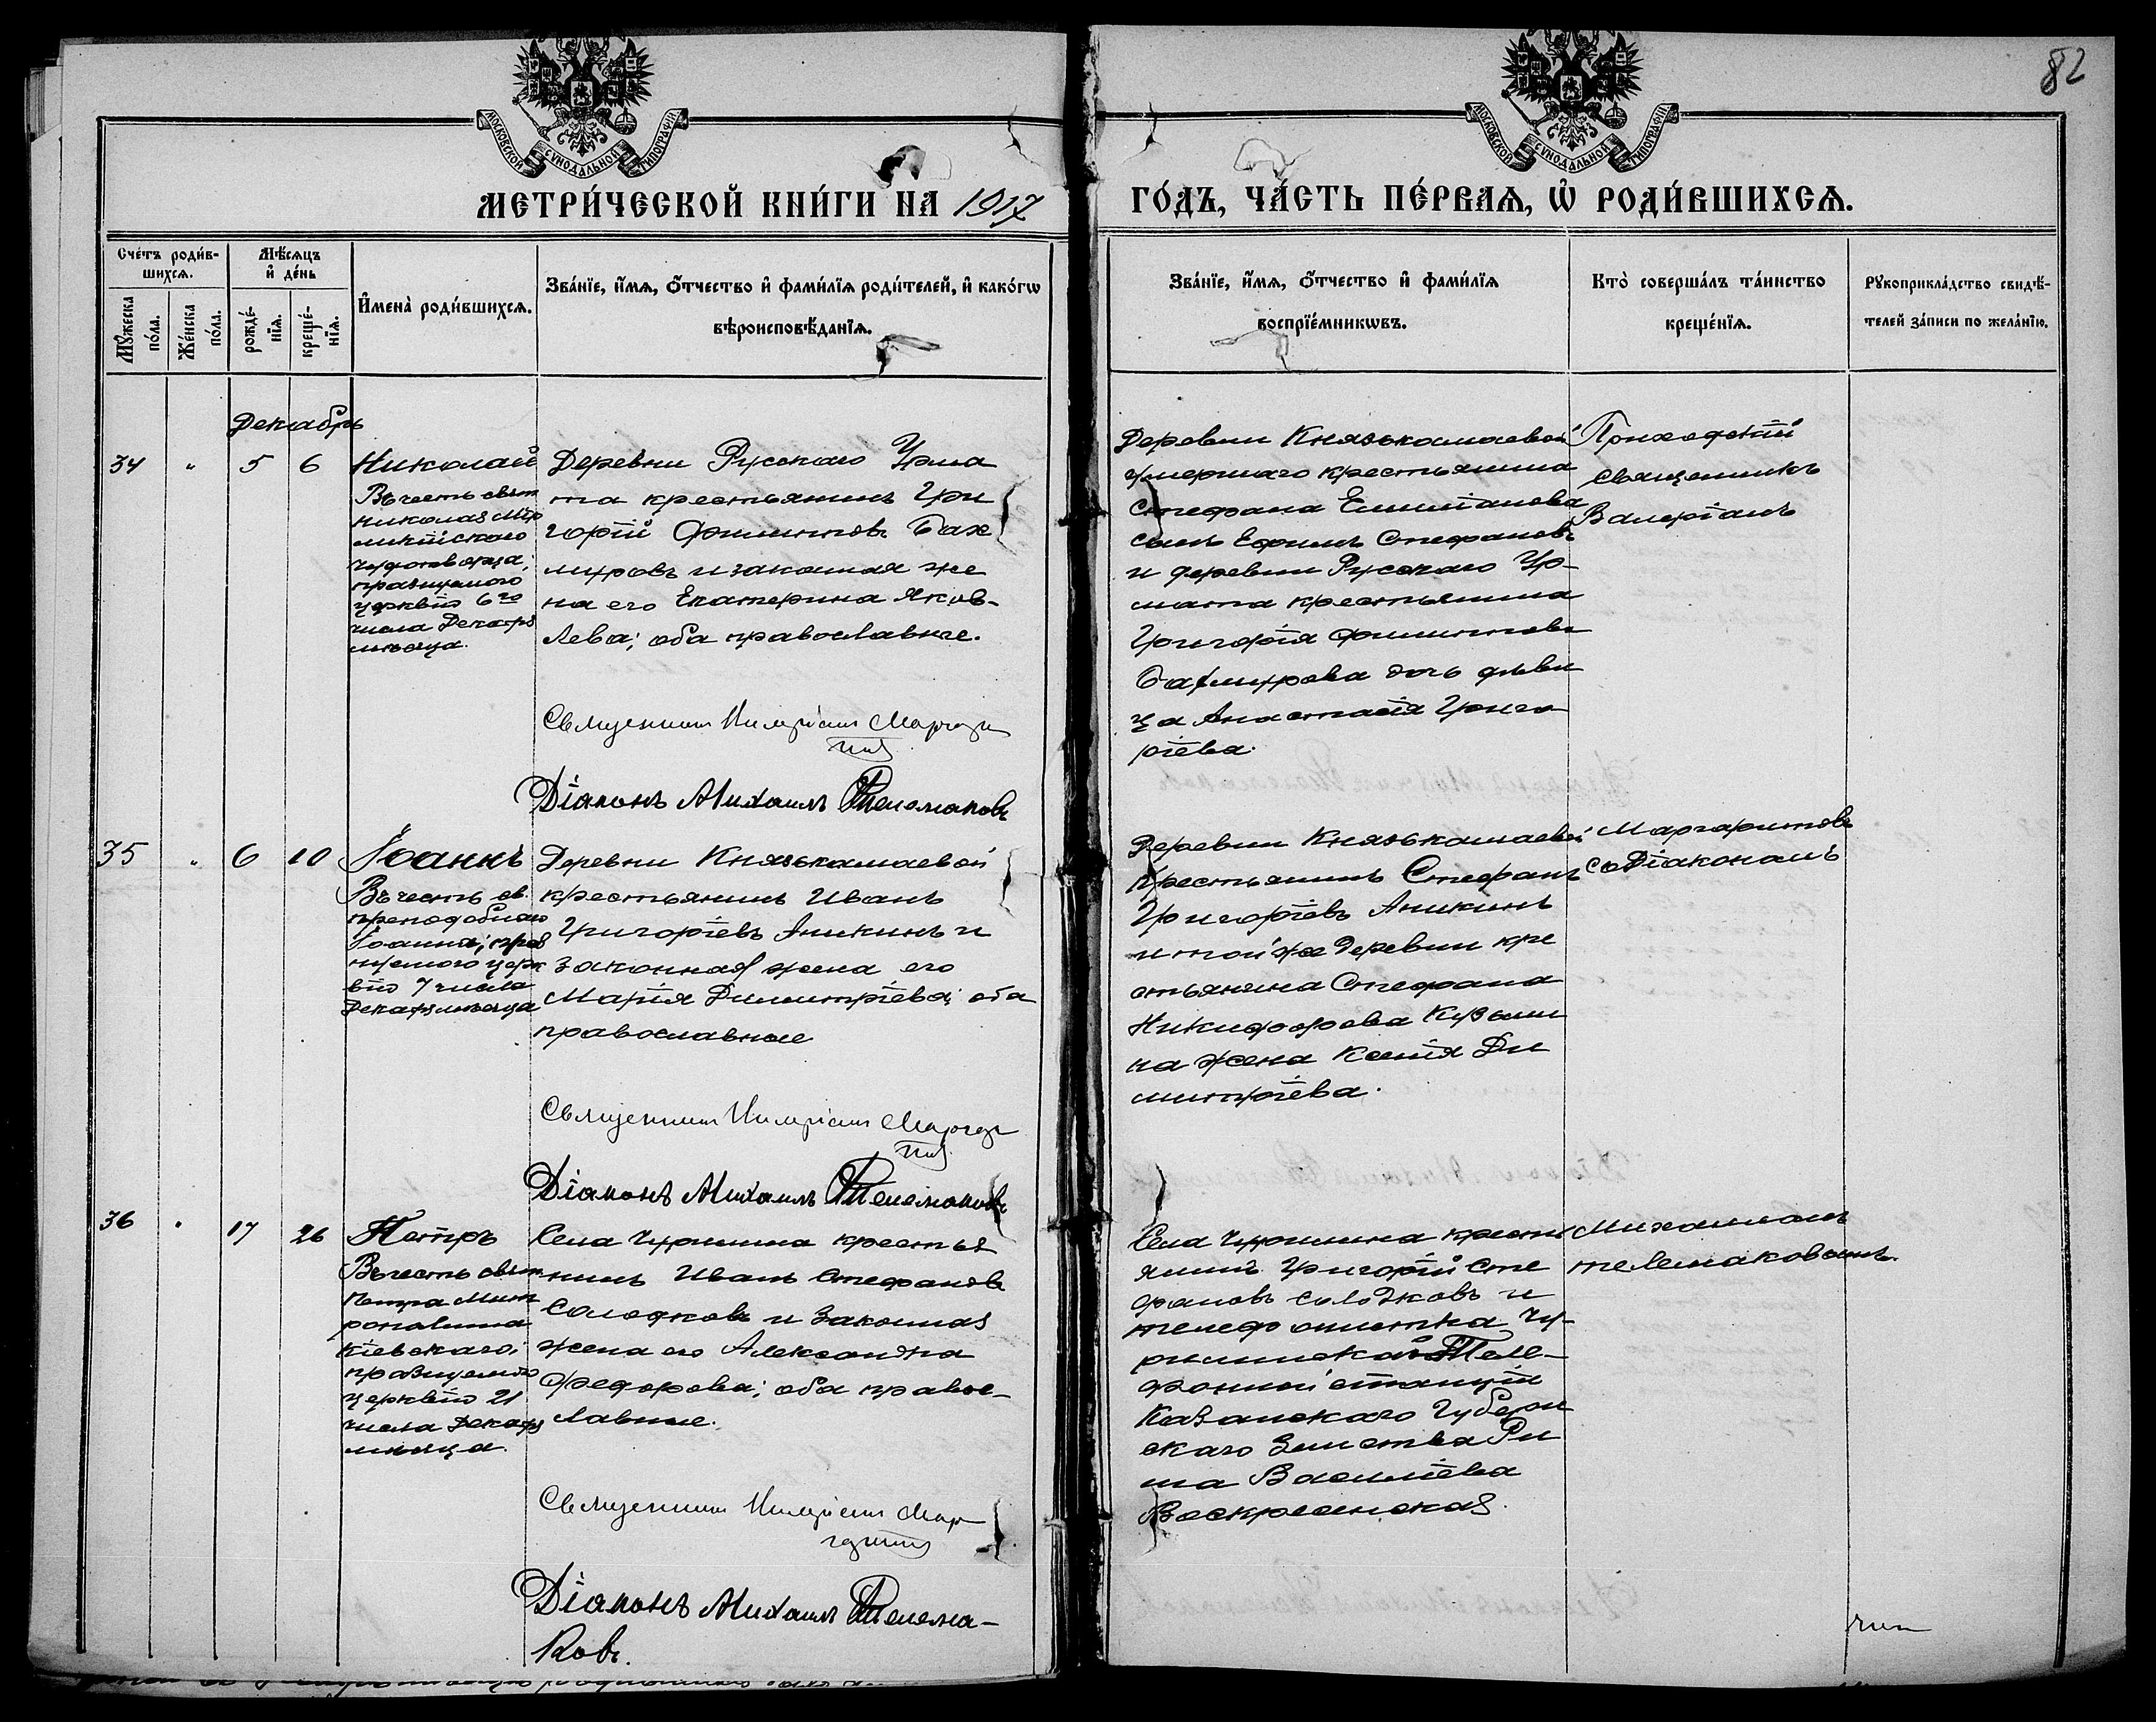 82
МОСКОВСКОЙ СѴНОДАЛЬНОЙ ТИПОГРАФІИ
МОСКОВСКОЙ СѴНОДАЛЬНОЙ ТИПОГРАФІИ
МЕТРИ́ЧЕСКОЙ КНИ́ГИ НА 1917
ГО́ДЪ, ЧА́СТЬ ПЕ́РВАѦ, Ѡ҆ РОДИ́ВШИХСѦ.
Сче́тъ роди́в-
шихсѧ.
Мꙋ́жеска
по́ла.
Же́нска
по́ла.
Мѣ́сѧцъ
и҆ де́нь
рожде́-
нїѧ.
креще́-
нїѧ.
И҆мена̀ роди́вшихсѧ.
Зва́нїе, и҆́мѧ, ѻ҆́тчество и҆ фами́лїѧ роди́телей, и҆ како́гѡ
вѣроисповѣ́данїѧ.
Зва́нїе, и҆́мѧ, ѻ҆́тчество и҆ фами́лїѧ
воспрїе́мникѡвъ.
Кто̀ соверша́лъ та́инство
креще́нїѧ.
Рꙋкоприкла́дство свидѣ́-
телей за́писи по жела́нїю.
Декабрь
34 " 5 6
Николай
Въ честь свят
Николая Мир
ликійскаго
чудотворца,
празднуемого
церквію 6го
числа Декабря
мѣсяца.
Деревни Русскаго Урма
та крестьянинъ Гри
горій Филипповъ Бах
муровъ и законная же
на его Екатерина Яков-
лева; оба православные.
Священникъ Валеріанъ Маргари
товъ
Діаконъ Михаилъ Телемаковъ
Деревни Князькамаевой
умершаго крестьянина
Стефана Емиліанова
сынъ Ефимъ Стефановъ
и деревни Русскаго Ур-
мата крестьянина
Григорія Филиппова
Бахмурова дочь дѣви
ца Анастасія Григо
ріева.
Приходскій
священникъ
Валеріанъ
35 " 6 10
Іоаннъ
Въ честь св.
преподобнаго
Іоанна; праз
нуемого церк
вію 7 числа
Декабря мѣсяца
Деревни Князькамаевой
крестьянинъ Иванъ
Григоріевъ Аникинъ и
законная жена его
Марія Димитріева; оба
православные
Священникъ Валеріанъ Маргари
товъ
Діаконъ Михаилъ Телемаковъ
Деревни Князькамаевой
крестьянинъ Стефанъ
Григоріевъ Аникинъ
и той же деревни кре
стьянина Стефана
Никифорова Кузьми
на жена Ксенія Ди
митріева.
Маргаритовъ
съ Діакономъ
36 " 17 26
Петръ
Въ честь свят
Петра Мит
рополита
Кіевскаго,
празднуемого
церквію 21
числа Декабря
мѣсяца.
Села Чурилина крестья
нинъ Иванъ Стефановъ
Солодковъ и законная
жена его Александра
Федорова; оба правос-
лавные.
Священникъ Валеріанъ Мар
гаритовъ
Діаконъ Михаилъ Телема-
ковъ.
Села Чурилина кресть
янинъ Григорій Сте
фановъ Солодковъ и
телефонистка Чу-
рилинской Теле-
фонной станціи
Казанскаго Губерн
скаго Земства Ри
ма Васильева
Воскресенская.
Михаиломъ
Телемаковымъ.